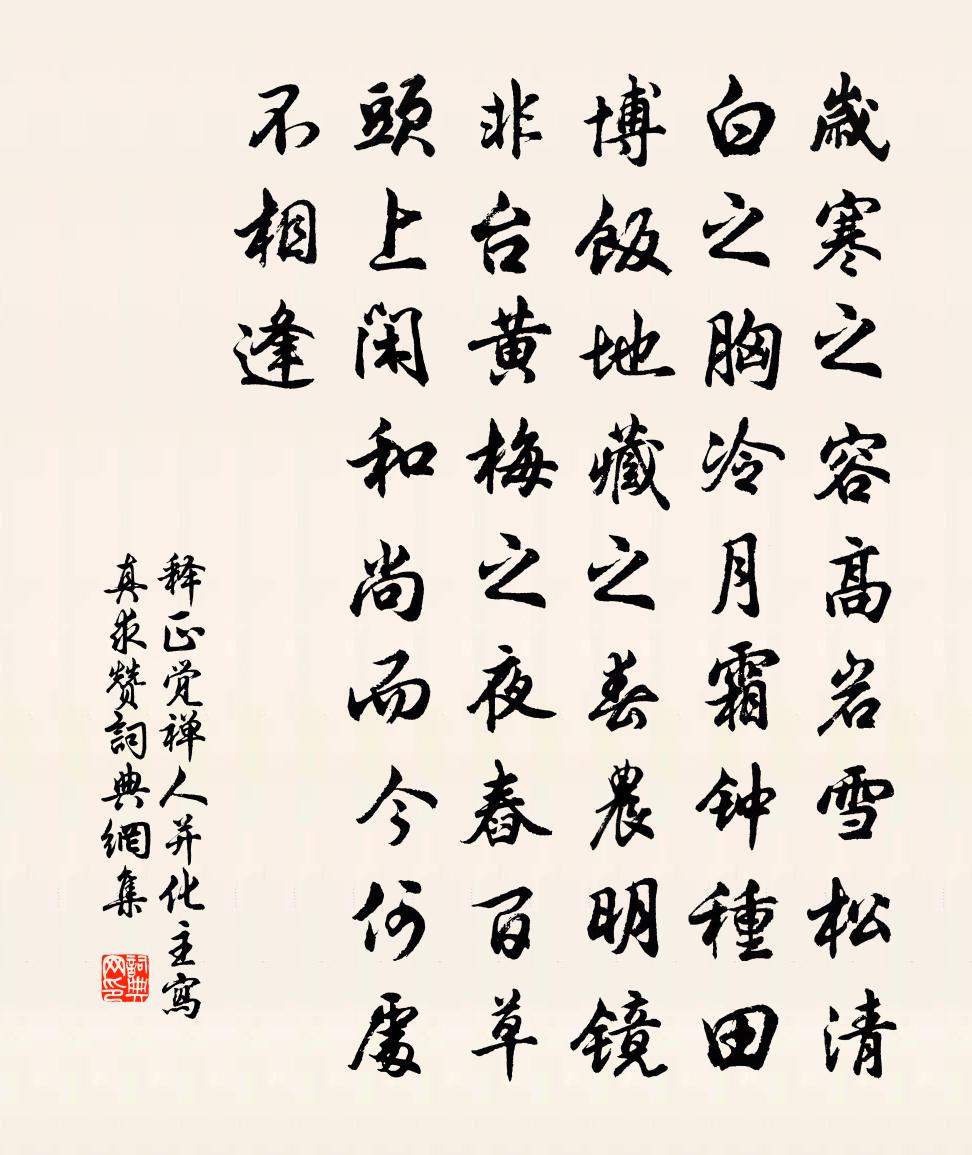 歲寒之容高岩雪松清
白之胸冷月霜钟種田
博飯地藏之春農明镜
非台黄梅之夜舂百草
頭上闲和尚而今何處
不相逢
释正觉禅人并化主寫
真求赞詞典網集
詞典网印